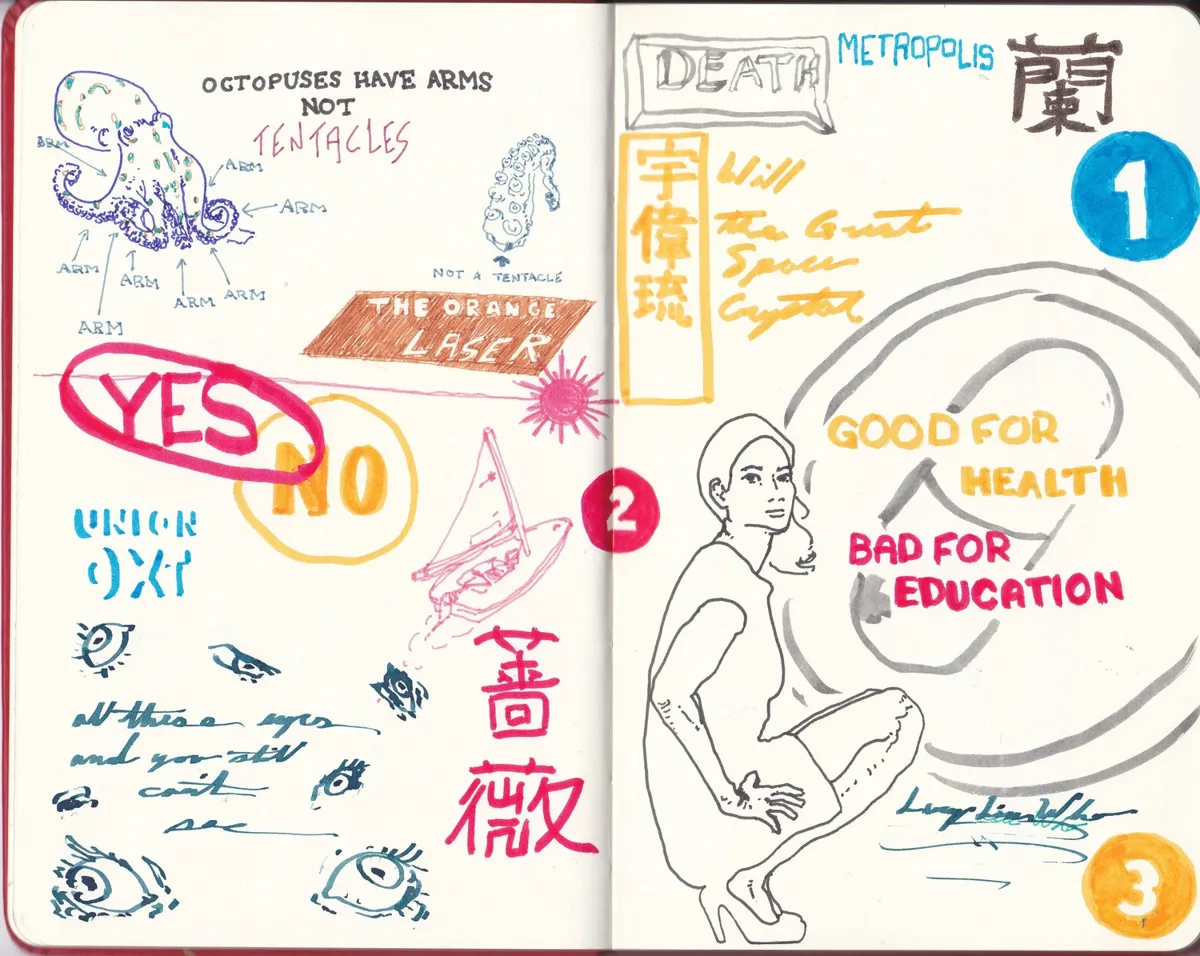 OCTOPUSES HAVE ARMS
NOT
TENTACLES
ARM
ARM
ARM
ARM
ARM
ARM
ARM
ARM
NOT A TENTACLE
THE ORANGE
LASER
YES
NO
UNION
OXY
all these eyes
and you still
can't
see
薔
薇
2
DEATH
METROPOLIS
蘭
1
宇
偉
琉
Will
the Great
Space
Crystal
GOOD FOR
HEALTH
BAD FOR
EDUCATION
3